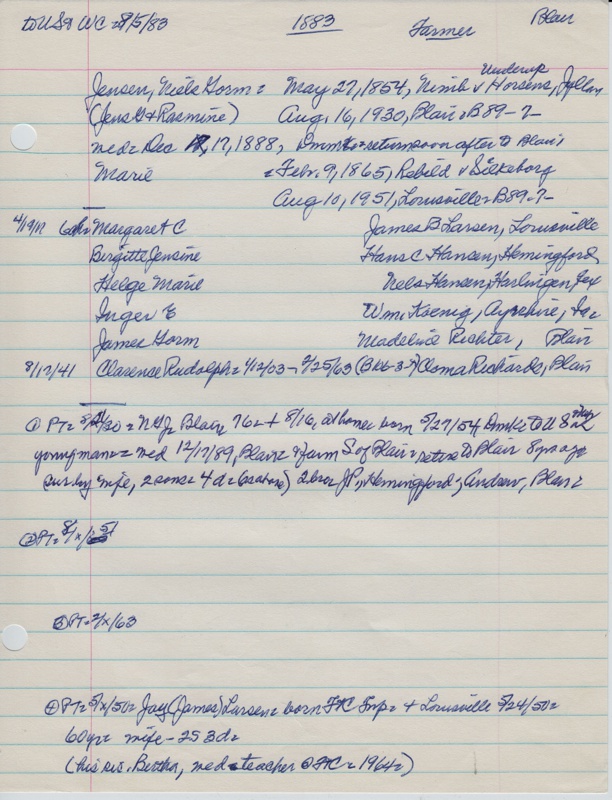 to USA WC = 8/5/83 1883 Farmer Blair
Underup
Jensen, Niels Gorm = May 27, 1854, Nimb v Horsens, Jylland
(Jens G + Rasmine) Aug. 16, 1930, Blair, B89-7-
med = Dec 17, 1888, Dmmk + return soon after to Blair
Marie = Febr. 9, 1865, Rebild v Silkeborg
Aug 10, 1951, Louisville = B89-7-
6 ch = Margaret C James B Larsen, Louisville
Birgitte Jensine Hans C Hansen, Hemingford
Helge Marie Nels Hansen, Harlingen, Tex
Inger E Wm. Koenig, Ayrshire, Ia
James Gorm Madeline Richter, Blair
8/17/41 Clarence Rudolph = 4/12/03 - 2/25/63 (Bk6-3-7) Oloma Richards, Blair
① PT = 8/21/30 = NGJ Blair, 76 = + 8/16, at home born 5/27/54 Dmk to US
young man = med 12/17/89, Blair = farm S of Blair = retire to Blair 8 yrs ago
surv by wife, 2 sons + 4 d = (6 above) 2 bro = JP, Hemingford; Andrew, Blair =
② PT = 8/x/51
③ PT = 2/x/63
④ PT = 5/x/50 = Jay (James) Larsen = born FtC Twp = + Louisville 5/24/50 =
60 yr = wife - 2S 3d =
(his sis. Bertha, med = teacher @ FtC = 1964 =)